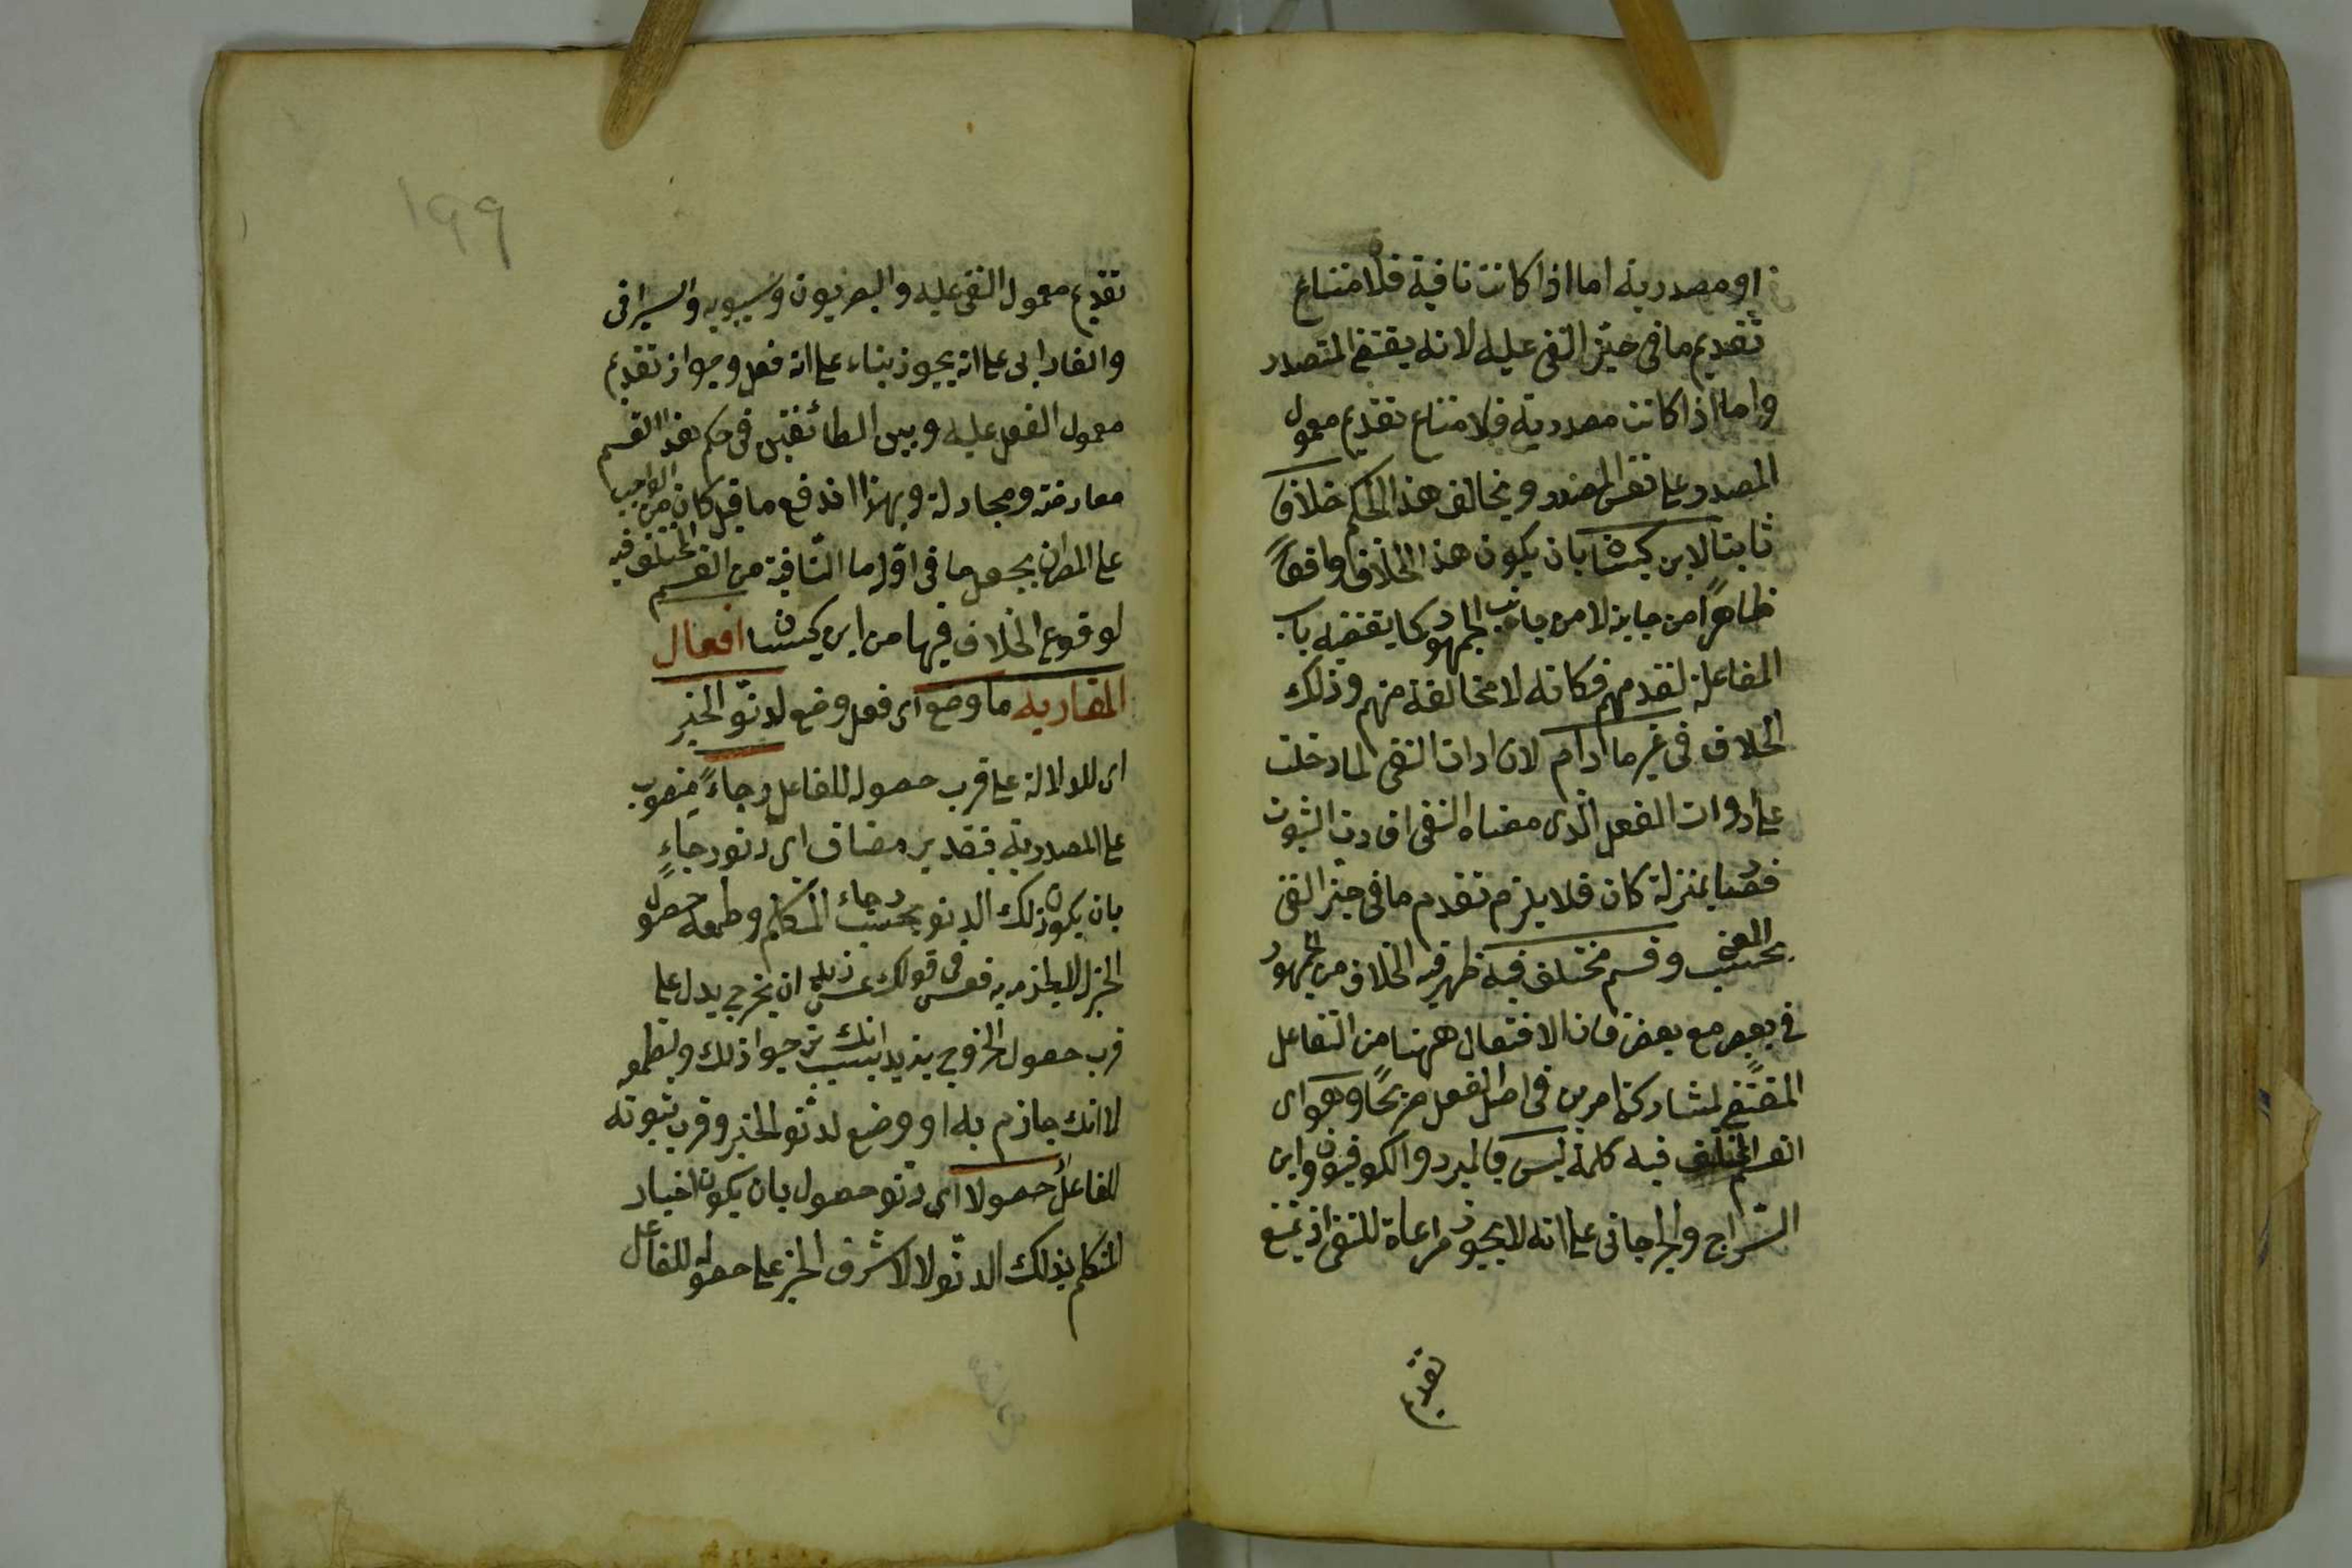 او مصدرية اما اذا كانت نافية فلامتناع
تقديم ما فى حيّز النفى عليه لانه يقتضى التصدر
واما اذا كانت مصدرية فلامتناع تقديم معمول
المصدر على نفس المصدر ويخالف هذا الحكم خلافا
ثابتا لابن كيسان بان يكون هذا الخلاف واقعاً
ظاهراً من جانبه لا من جانب الجمهور كما يقتضيه باب
المفاعلة لتقدمهم فكانه لا مخالفة منهم وذلك
الخلاف فى غير مادام لان ادات النفى لما دخلت
على ادوات الفعل الّذى معناه النفى افادت الثبوت
فصار بمنزلة كان فلا يلزم تقدم ما فى حيز النفى
بحسب المعنى وقسم مختلف فيه ظهر فيه الخلاف من الجمهور
فى بعض مع بعض فان الافتعال ههنا من التفاعل
المقتضى لمشاركة امرين فى اصل الفعل صريحًا وهو اى
القسم المختلف فيه كلمة ليس فالمبرد والكوفيون وابن
السّراج والجرجانى على انه لا يجوز مراعاة للنفى اذ يمتنع
تقديم
١٩٩
تقديم معمول النفى عليه والبصريون وسيبويه والسيرافى
والفارابى على انه يجوز بناء على انه فعل وجواز تقديم
معمول الفعل عليه وبين الطائفتين فى حكم هذا القسم
معارضة ومجادلة وبهذا اندفع ما قيل كان من الواجب
على المص ان يجعل ما فى اوّله ما النّافية من القسم المختلف فيه
لوقوع الخلاف فيها من ابن كيسان افعال
المقاربة ما وضع اى فعل وضع لدنوّ الخبر
اى للدلالة على قرب حصوله للفاعل رجاءً منصوب
على المصدرية بتقدير مضاف اى دنو رجاءٍ
بان يكون ذلك الدنو بحسب رجاء المتكلم وطمعه حصول
الخبر لا لجزمه به فعسى فى قولك عسى زيد ان يخرج يدل على
قرب حصول الخروج بزيد بسبب انك ترجوا ذلك وتطمع
لا انك جازم به او وضع لدنو الخبر وقرب ثبوته
للفاعل حصولا اى دنو حصول بان يكون اخبار
المتكلم بذلك الدنّو لا لاشرف الخبر على حصوله للفاعل